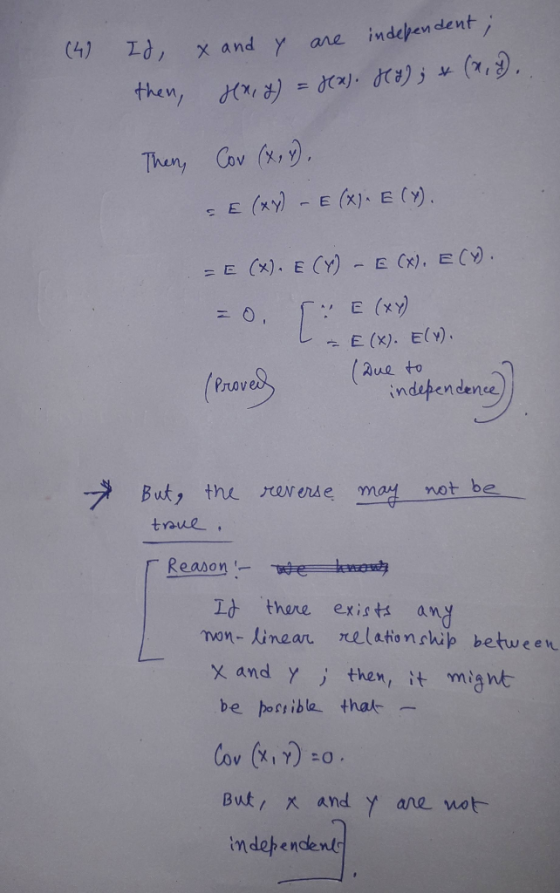 (4) If, x and y are independent;
then, f(x, y) = f(x). f(y); ∀ (x, y).
Then, Cov (x, y).
= E (XY) - E (X). E (Y).
= E (X). E (Y) - E (X). E (Y).
= 0. [∵ E (XY)
= E (X). E(Y).
(Proved) (Due to
independence)].
→ But, the reverse may not be
true.
[Reason:- we know,
If there exists any
non-linear relationship between
X and Y; then, it might
be possible that -
Cov (X, Y) = 0.
But, X and Y are not
independent].